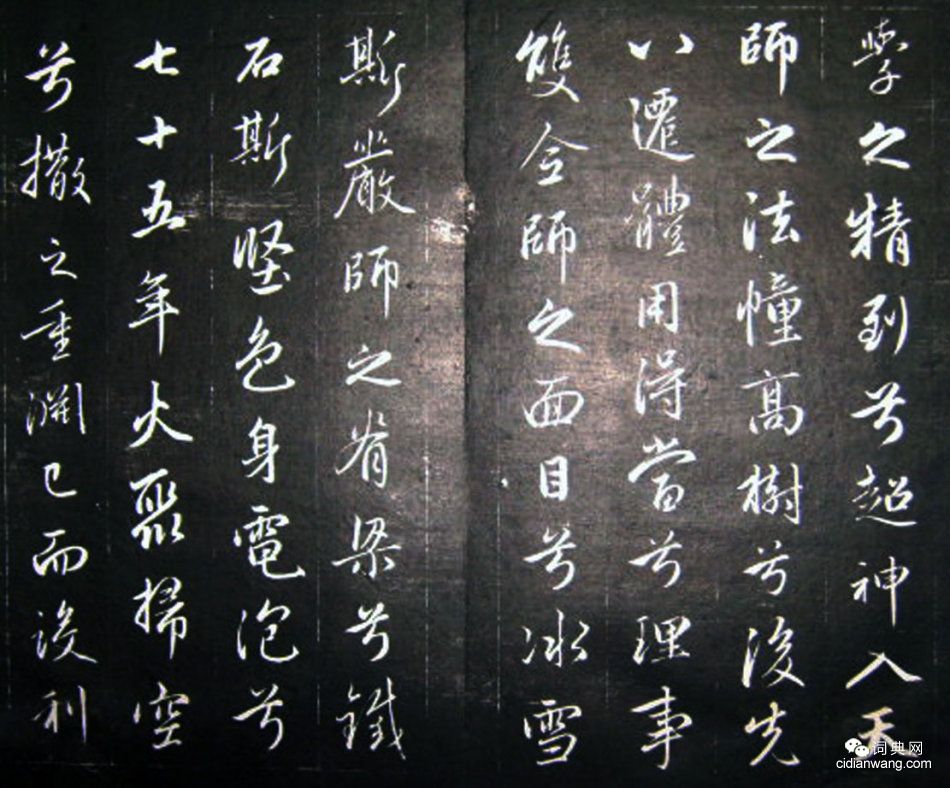 學之精到兮超神入天
師之法幢高樹兮後先
八還體用得當兮理事
雙全師之面目兮冰雪
斯嚴師之脊梁兮鐵
石斯堅色身電泡兮
七十五年火聚掃空
兮撒之重淵已而設利
词典网
cidianwang.com